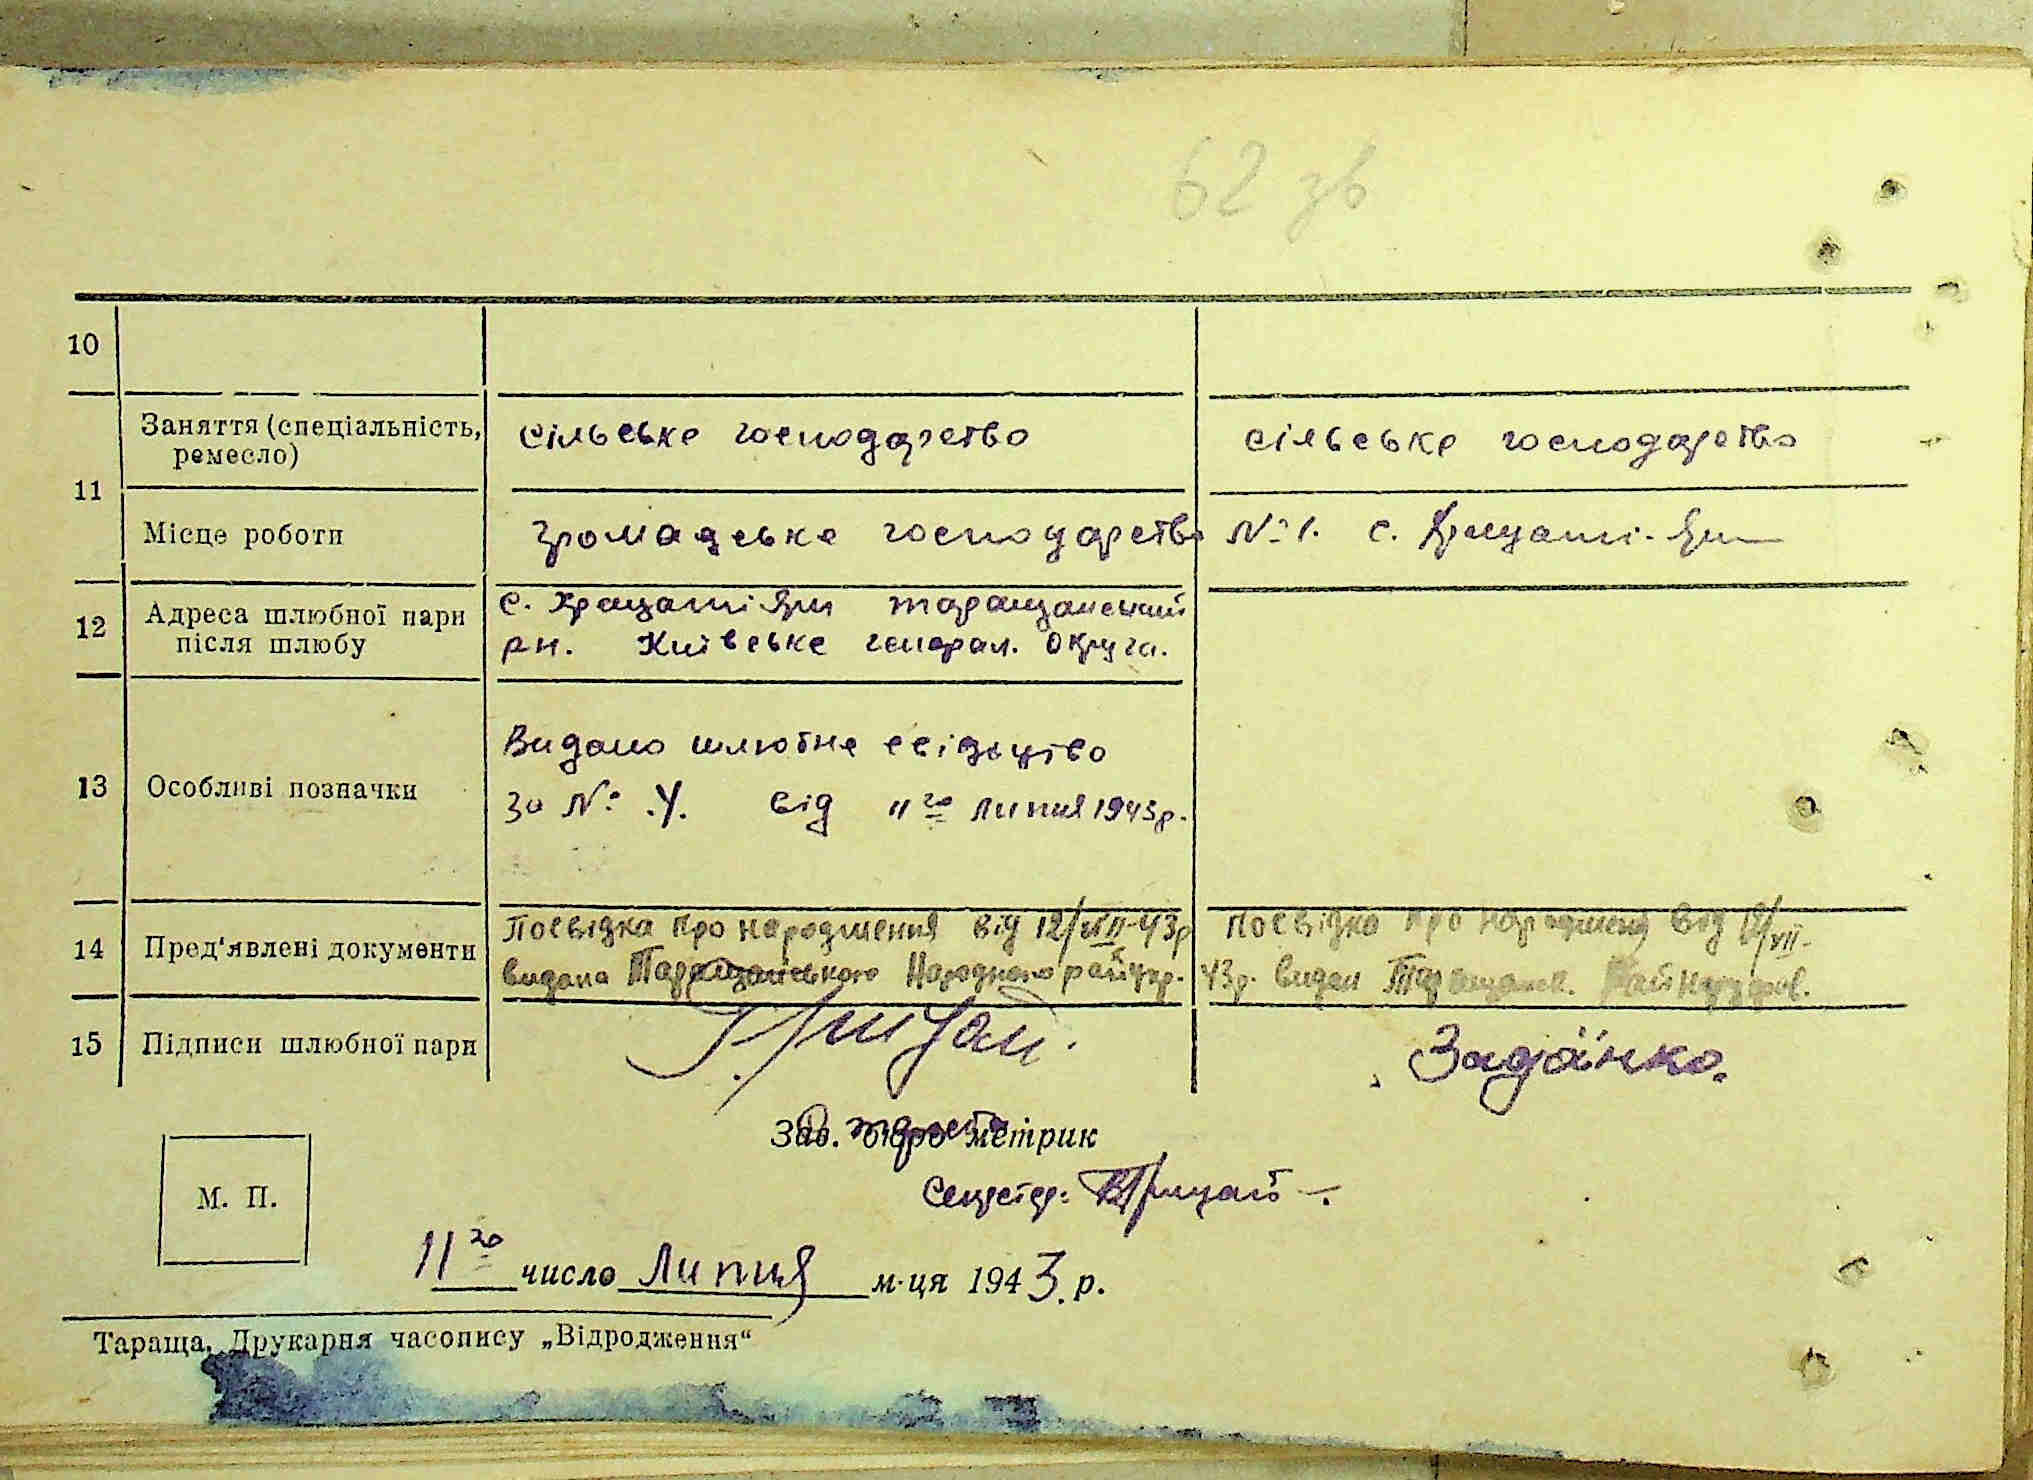 62 зв
10
Заняття (спеціальність, ремесло)
сільське господарство
сільське господарство
11
Місце роботи
Громадське господарство №1. с. Хрещаті-Яри
12
Адреса шлюбної пари після шлюбу
с. Хрещаті Яри Таращанський
рн. Київське генерал. округа.
13
Особливі позначки
Видано шлюбне свідоцтво
за №: 4. від 11го липня 1943р.
14
Пред'явлені документи
Посвідка про народження від 12/VII-43р
видана Таращанського Народного райупр.
посвідка про народження від 12/VII-
43р. видан Таращанск.
15
Підписи шлюбної пари
Зав. бюро метрик
Секретар:
М. П.
11го число Липня м-ця 1943. р.
Тараща, Друкарня часопису „Відродження“